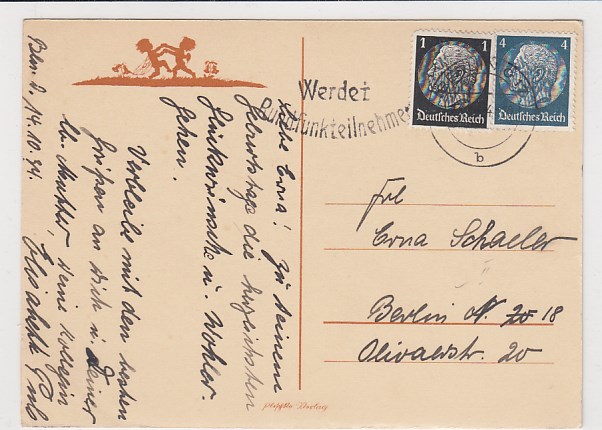 1 1
Deutsches Reich
4 4
Deutsches Reich
Werdet
Rundfunkteilnehmer
b
Bln. d. 14.10.34.
Liebe Erna! Zu deinem
Geburtstage die herzlichsten
Glückwünsche u. Wohler-
gehen.
Verbleibe mit den besten
Grüßen an Dich u. Deiner
lb. Mutter, Deine Kollegin
Elisabeth
Frl
Erna Schaeler
Berlin N. 20 18
Olivaerstr. 20
Verlag